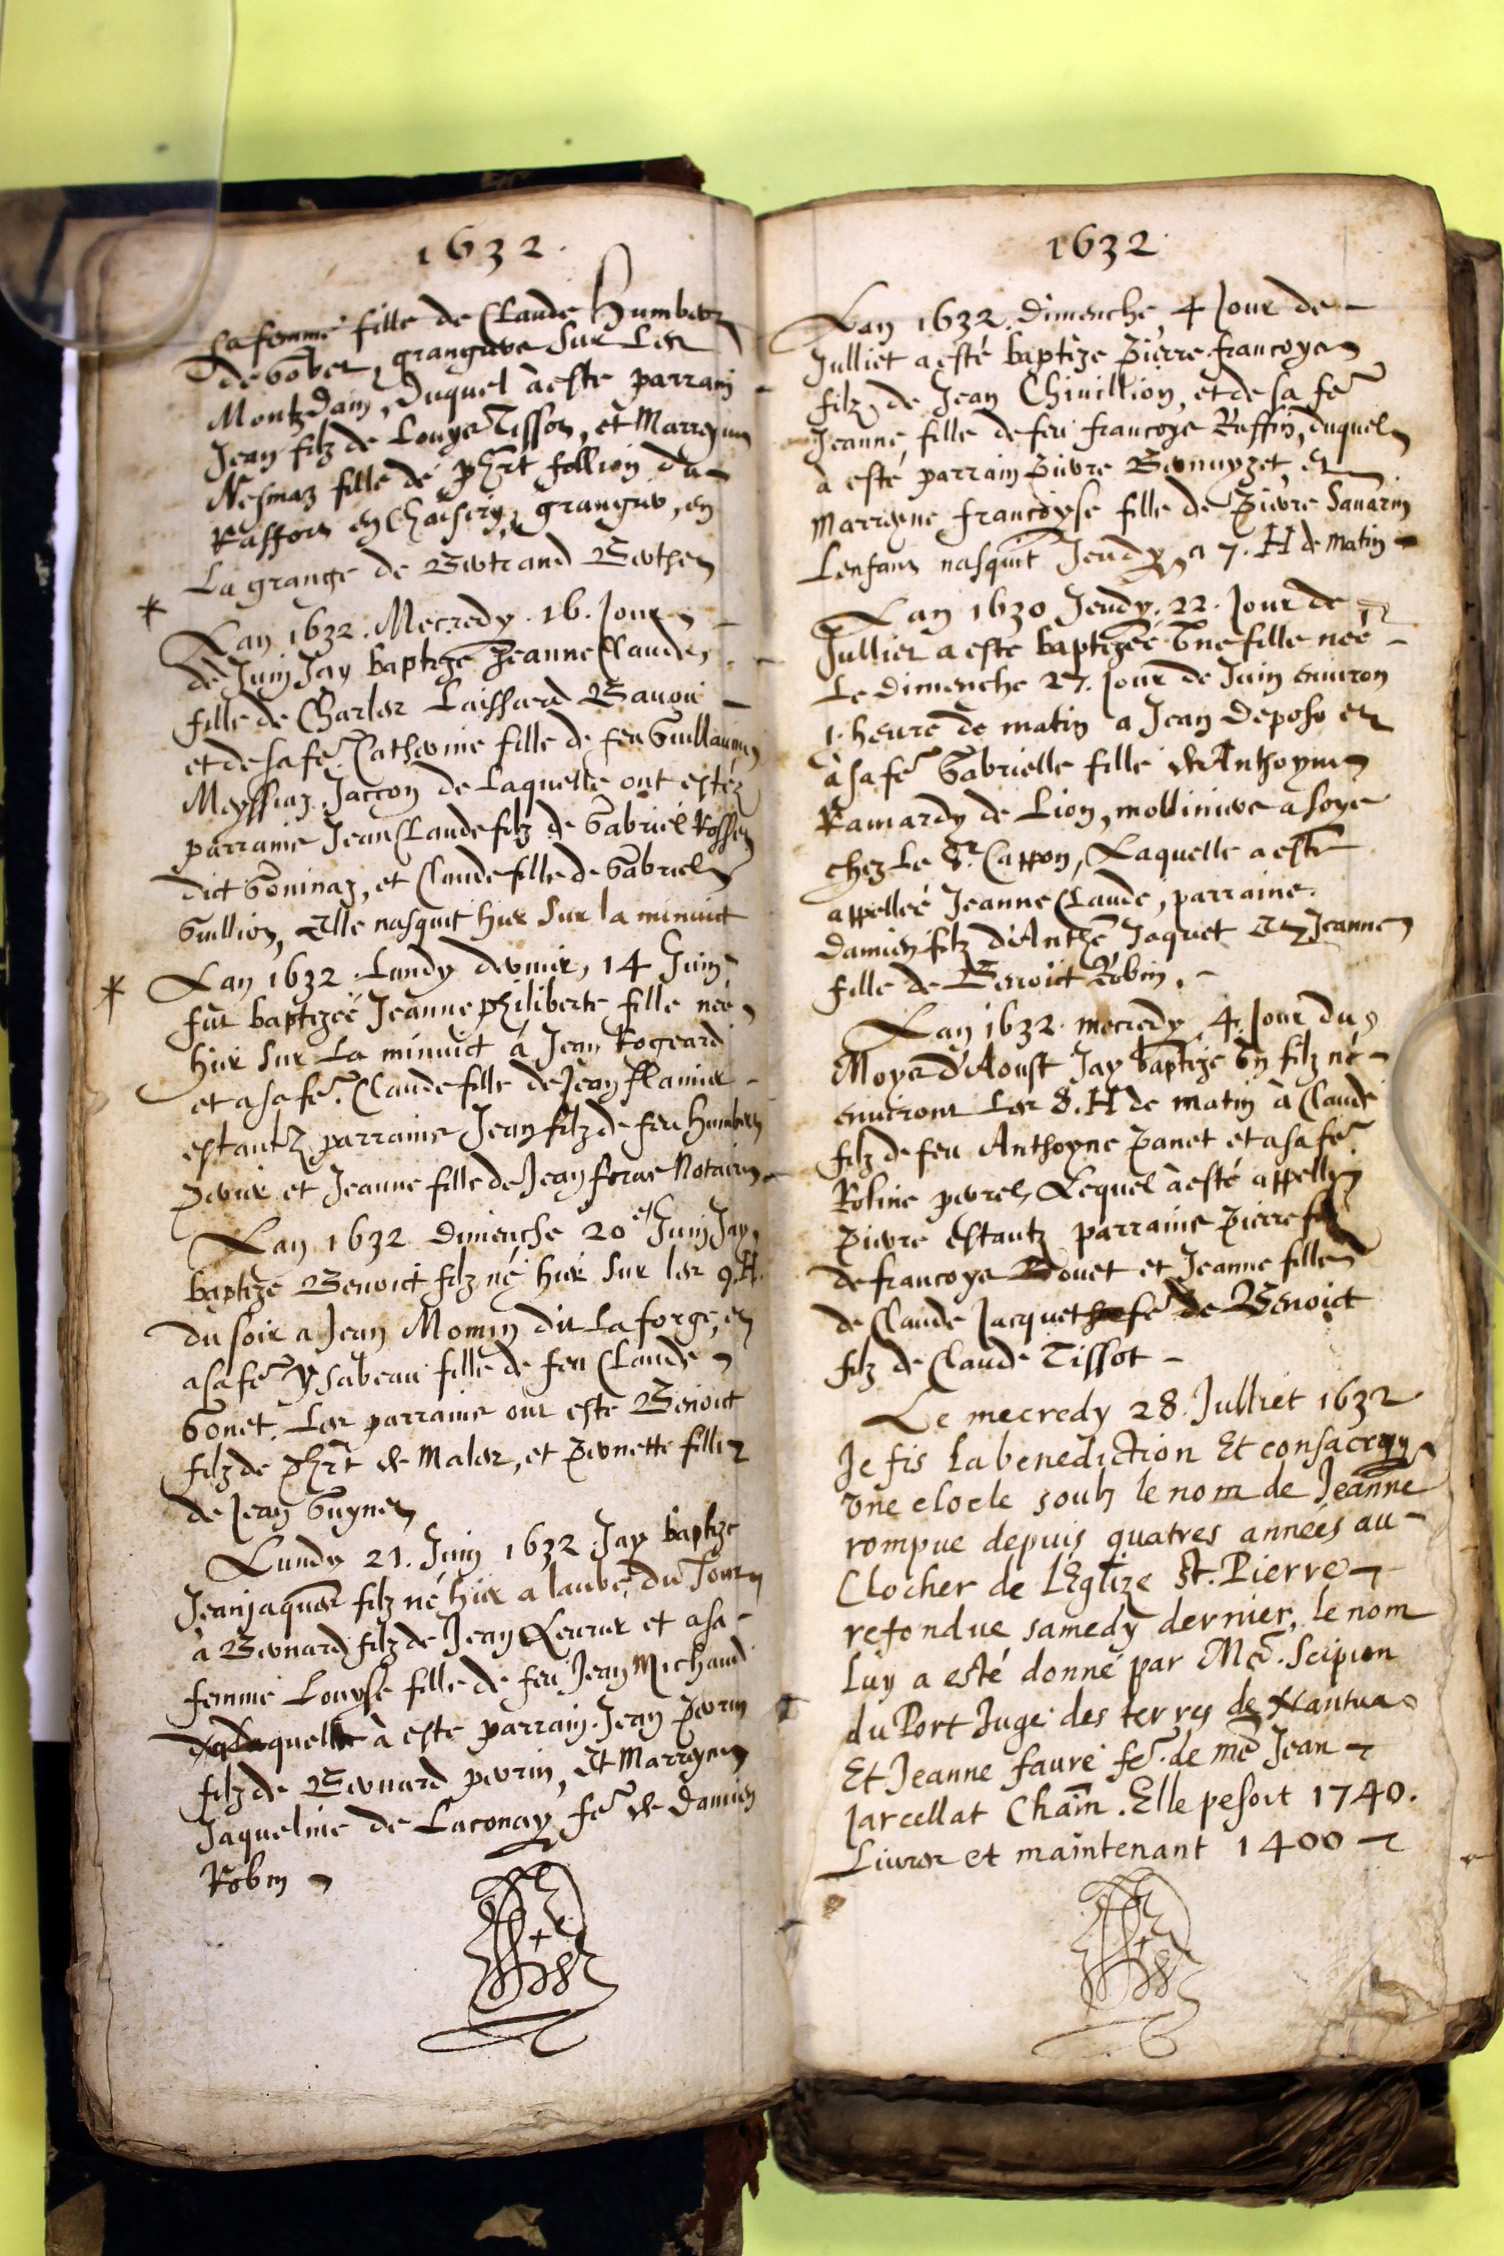 1632.
sa femme fille de Claude Humbert
de Vober, grangiere sur Les
Montz dain, duquel a este parrain
Jean filz de Louys Tissot, et Marreyne
Nesmaz fille de phrt follion du
Raffour en Chaisery, grangier, en
La grange de Bertrand Berthet
* Lan 1632. Mecredy. 16. Jour
de Juin Jay baptizé Jeanne Claude,
fille de Charles Laissard
et de sa fe. Catherine fille de feu Guillaume
Meyssiaz Jaccon de Laquelle ont estéz
parrains Jean Claude filz de Gabriel Rosset
dict Goninaz, et Claude fille de Gabriel
Guillion, Elle nasquit hier sur la minuict
* Lan 1632. Lundy dernier, 14 Juin
fut baptizeé Jeanne philiberte fille neé
hier sur La minuict à Jean Rogeard
et a sa fe. Claude fille de Jean flamier
estantz parrains Jean filz de feu Humbert
Perrier et Jeanne fille de Jean foras Notaire
Lan 1632 dimenche 20 Juin Jay
baptizé Benoict filz né hier sur les 9. H.
du soir a Jean Momin dit La forge, et
a sa fe Ysabeau fille de feu Claude
Gonet. Les parrains ont este Benoict
filz de phrt de Males, et Pernette fille
de Jean Guynet
Lundy 21. Juin 1632 Jay baptize
Jean jaques filz né hier a laube du Jour
à Bernard filz de Jean Levrier et a sa
femme Louyse fille de feu Jean Michaud
duquel à este parrain Jean perrin
filz de Bernard perrin, Et Marreyne
Jaqueline de Laconay fe de Damien
Robin
1632.
Lan 1632. dimenche 4 Jour de
Julliet a esté baptize Pierre françoys
filz de Jean Chivillion, et de sa fe
Jeanne, fille de feu françoys Ruffin, duquel
à esté parrain Pierre et
Marreyne françoyse fille de Pierre Savarin
Lenfant nasquit Jeudy a 7. H de matin
Lan 1630 Jeudy. 22. Jour de
Jullier a este baptizeé Une fille neé
Le dimenche 27. Jour de Juin environ
1. heure de matin a Jean Deposo et
à sa fe Gabrielle fille de Anthoyne
Ramardy de Lion, molliniere a soye
chez Le Sr. Cappon, Laquelle a esté
appelleé Jeanne Claude, parrains.
Damien filz d'Anthe Jaquet Et Jeanne
fille de Benoict Robin.
Lan 1632. mecredy 4. Jour du
Moys d'Aoust Jay baptizé Un filz né
environt Les 8. H de matin à Claude
filz de feu Anthoyne Panet et a sa fe
Roline perrel, Lequel à esté appellé
Pierre estantz parrains Pierre filz
de françoys Bouet et Jeanne fille
de Claude Jacquet fe de Benoict
filz de Claude Tissot
Le mecredy 28. Julliet 1632
Je fis La benediction Et consacray
Une cloche soub le nom de Jeanne
rompue depuis quatres annees au
Clocher de LEglize St. Pierre
refondue samedy dernier, le nom
Luy a esté donné par Me. Scipion
du Port Juge des terres de Nantua
Et Jeanne faure fe. de me Jean
Jarcellat Cham. Elle pesoit 1740.
Livres et maintenant 1400